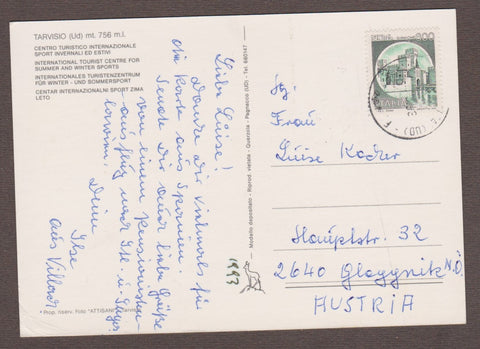 TARVISIO (Ud) mt. 756 m.l.
CENTRO TURISTICO INTERNAZIONALE
SPORT INVERNALI ED ESTIVI
INTERNATIONAL TOURIST CENTRE FOR
SUMMER AND WINTER SPORTS
INTERNATIONALES TURISTENZENTRUM
FÜR WINTER - UND SOMMERSPORT
CENTAR INTERNAZIONALNI SPORT ZIMA
LETO
Liebe Luise!
Danke Dir vielmals für
die Karte aus Spanien.
Sende Dir liebe Grüße
von einem Pensionisten-
ausflug nach
Deine
Ilse
aus Villach
Prop. riserv. Foto "ATTISANI"
Modello depositato - Riprod. vietata - Querzola - Pagnacco (UD) - Tel. 660147
1993
ITALIA
(UD)
Frau
Luise Kocher
Hauptstr. 32
2640 Gloggnitz N.Ö.
AUSTRIA